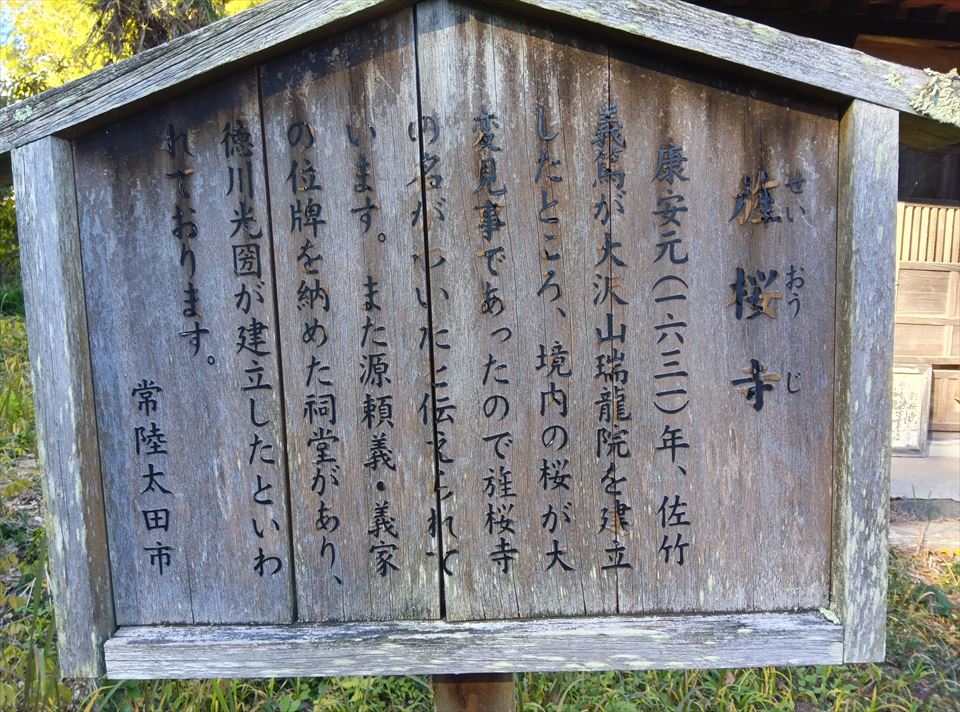 旌桜寺
せいおうじ
康安元(一六三一)年、佐竹
義篤が大沢山瑞龍院を建立
したところ、境内の桜が大
変見事であったので旌桜寺
の名がついたと伝えられて
います。また源頼義・義家
の位牌を納めた祠堂があり、
徳川光圀が建立したといわ
れております。
常陸太田市